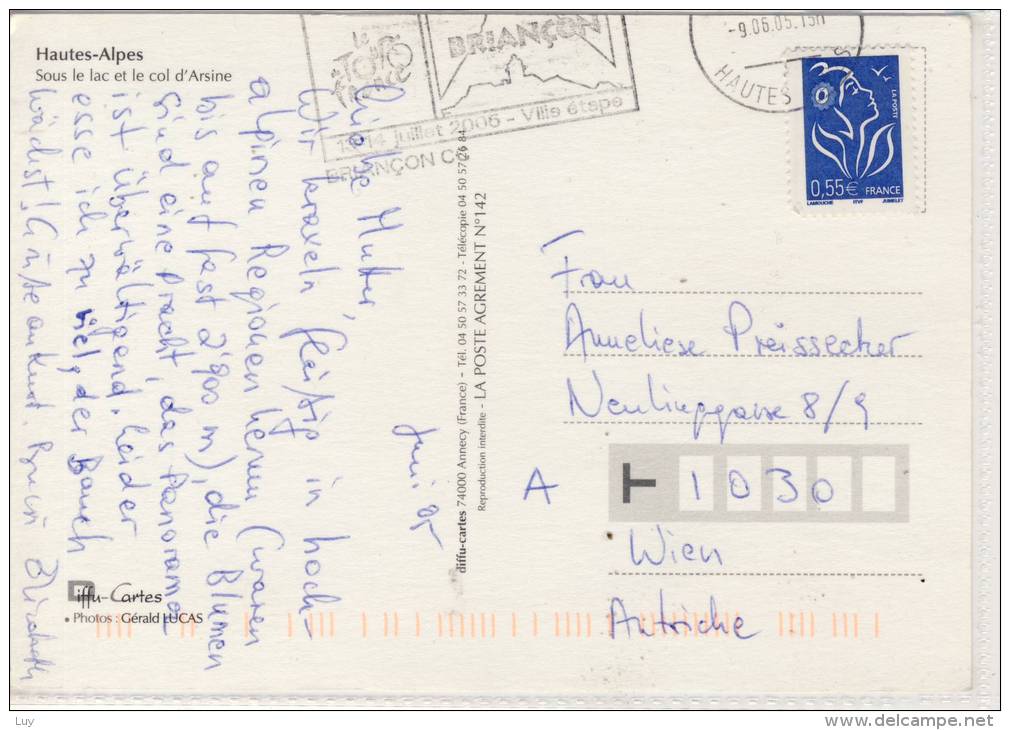 Hautes-Alpes
Sous le lac et le col d'Arsine
Le
Tour
de
France
BRIANÇON
juillet 2005 - Ville étape
BRIANÇON
-9.06.05.15H
HAUTES
LA POSTE
0,55€ FRANCE
LAMOUCHE ITVF JUMELET
Juni 05
Liebe Mutter,
Wir kraxeln fleißig in hoch-
alpinen Regionen herum (waren
bis auf fast 2'900 m), die Blumen
sind eine Pracht, das Panorama
ist überwältigend. Leider
esse ich zu viel, der Bauch
wächst!
diffu-cartes 74000 Annecy (France) - Tél. 04 50 57 33 72 - Télécopie 04 50 57 26 84
Reproduction interdite - LA POSTE AGREMENT N°142
Frau
Anneliese Preissecker
Neulinggasse 8/9
A
T 1030
Wien
Autriche
Diffu-Cartes
• Photos : Gérald LUCAS
Luy
www.delcampe.net